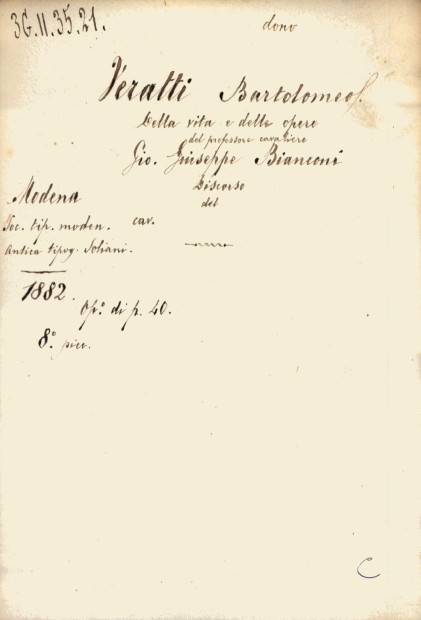 36.II.35.21.
dono
Veratti Bartolomeo
Della vita e delle opere
del professore cavaliere
Gio. Giuseppe Bianconi
Discorso
del
cav.
Modena
Soc. tip. moden.
Antica tipog. Soliani.
1882.
Op.º di p. 40.
8.º picc.
C